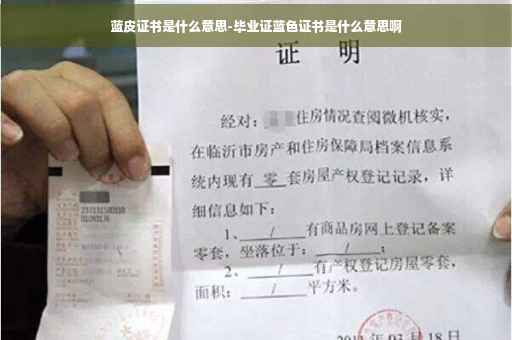 蓝皮证书是什么意思-毕业证蓝色证书是什么意思啊
证 明
经对：住房情况查阅微机核实，
在临沂市房产和住房保障局档案信息系
统内现有 零 套房屋产权登记记录，详
细信息如下：
1、 / 有商品房网上登记备案
零套，坐落位于： / ；
2、 / 有产权登记房屋零套，
面积： / 平方米。
03月18日